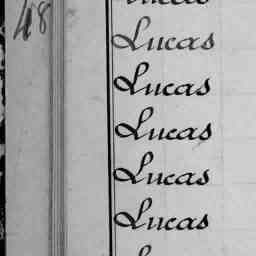 48
Lucas
Lucas
Lucas
Lucas
Lucas
Lucas